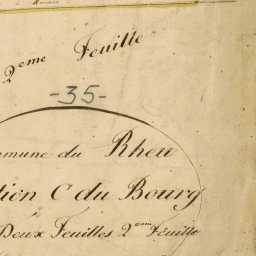 2eme Feuille
-35-
mmune du Rheu
tion C du Bourg
Deux Feuilles 2eme Feuille